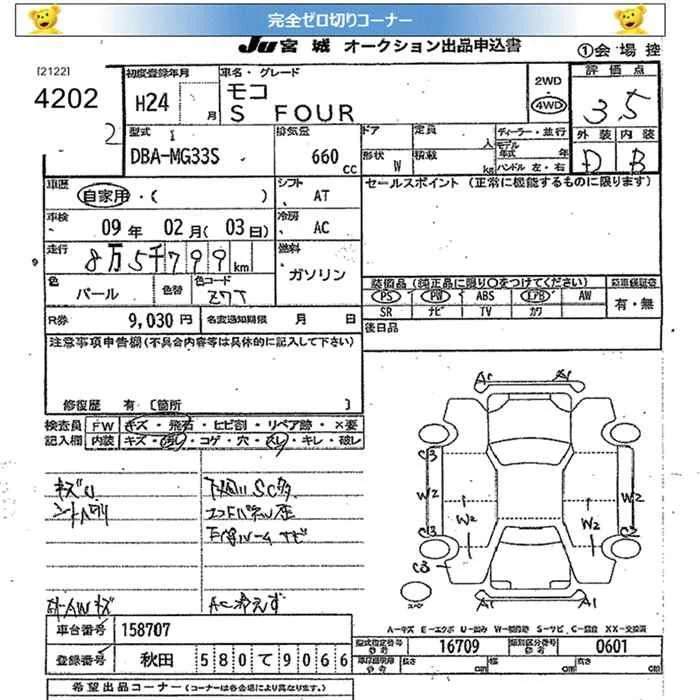 完全ゼロ切りコーナー
JU 宮城 オークション出品申込書
①会場控
[2122]
4202
2
初度登録年月
H24 月
車名・グレード
モコ
S FOUR
2WD
4WD
評価点
3.5
外装 内装
D B
型式
DBA-MG33S
排気量
660 CC
ドア
形状 W
定員 人
積載 kg
ディーラー・並行
モデル年式 年
ハンドル 左・右
車歴
自家用・( )
シフト
AT
セールスポイント (正常に機能するものに限ります)
車検
09 年 02 月 ( 03 日)
冷房
AC
走行
8万5千799 km
燃料
ガソリン
色
パール
色替
色コード
Z7T
装備品 (純正品に限り○をつけてください)
PS PW ABS エアB AW
SR ナビ TV カワ
新車保証書
有・無
R券 9,030 円
名変通知期限 月 日
後日品
注意事項申告欄(不具合内容等は具体的に記入して下さい)
修復歴 有 [箇所 ]
検査員記入欄
FW キズ・飛石・ヒビ割・リペア跡・×要
内装 キズ・汚れ・コゲ・穴・スレ・キレ・破レ
キズU
下廻りSCサ
AWキズ
AC冷えず
A1 A1
C3 C3
W2 W2 W2 W2
C3 C3
C3
A1 A1
スペア
A-キズ E-エクボ U-凹み W-補修跡 S-サビ C-腐蝕 XX-交換済
車台番号 158707
登録番号 秋田 580て9066
型式指定番号 16709
類別区分番号 0601
長さ cm 幅 cm 高さ cm
希望出品コーナー(コーナーは各会場により異なります。)